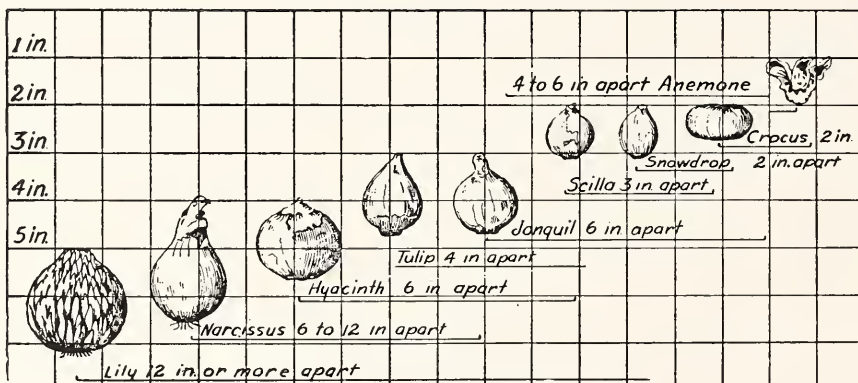 1 in.
4 to 6 in apart Anemone
2 in.
3 in.
Crocus, 2 in.
Snowdrop 2 in. apart
4 in.
Scilla 3 in apart
Jonquil 6 in apart
5 in.
Tulip 4 in apart
Hyacinth 6 in apart
Narcissus 6 to 12 in apart
Lily 12 in. or more apart